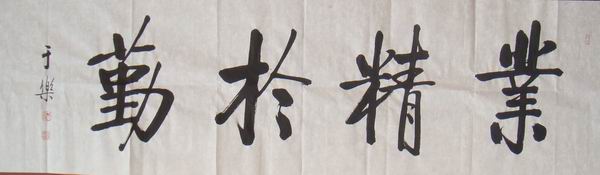 業精於勤
于樂